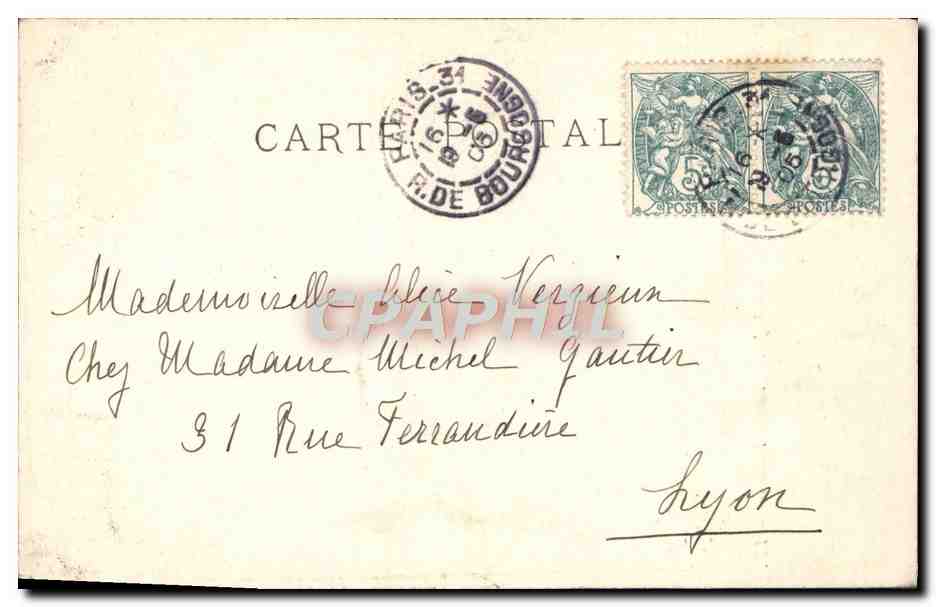 CARTE POSTAL
PARIS-31
R. DE BOURGOGNE
16 *
9 -5
05
5
POSTES
5
POSTES
CPAPHIL
Mademoiselle Alice
Chez Madame Michel Gautier
31 Rue Ferrandière
Lyon